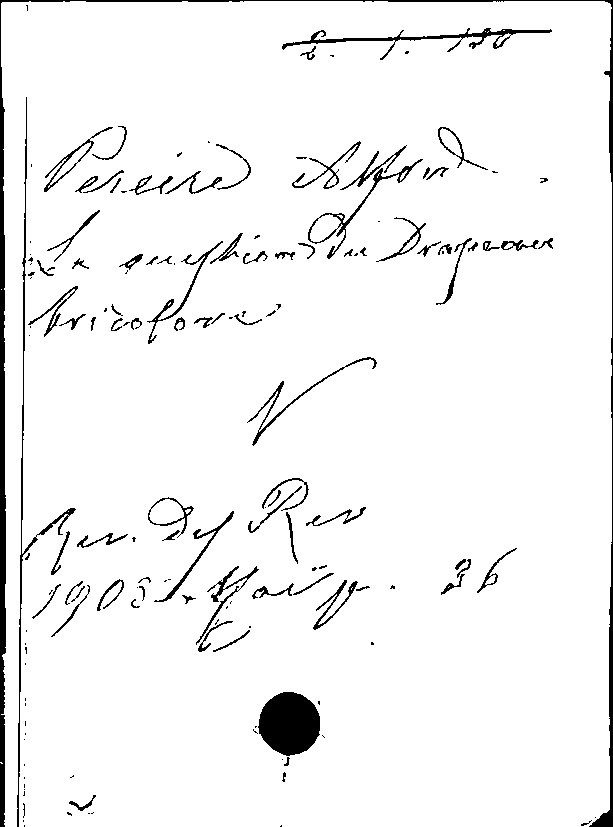 2. 1. 120
Pereire Alfond.
La question du Drapeau
tricolore
V
Rev. des Rev
1903. Mai p. 36